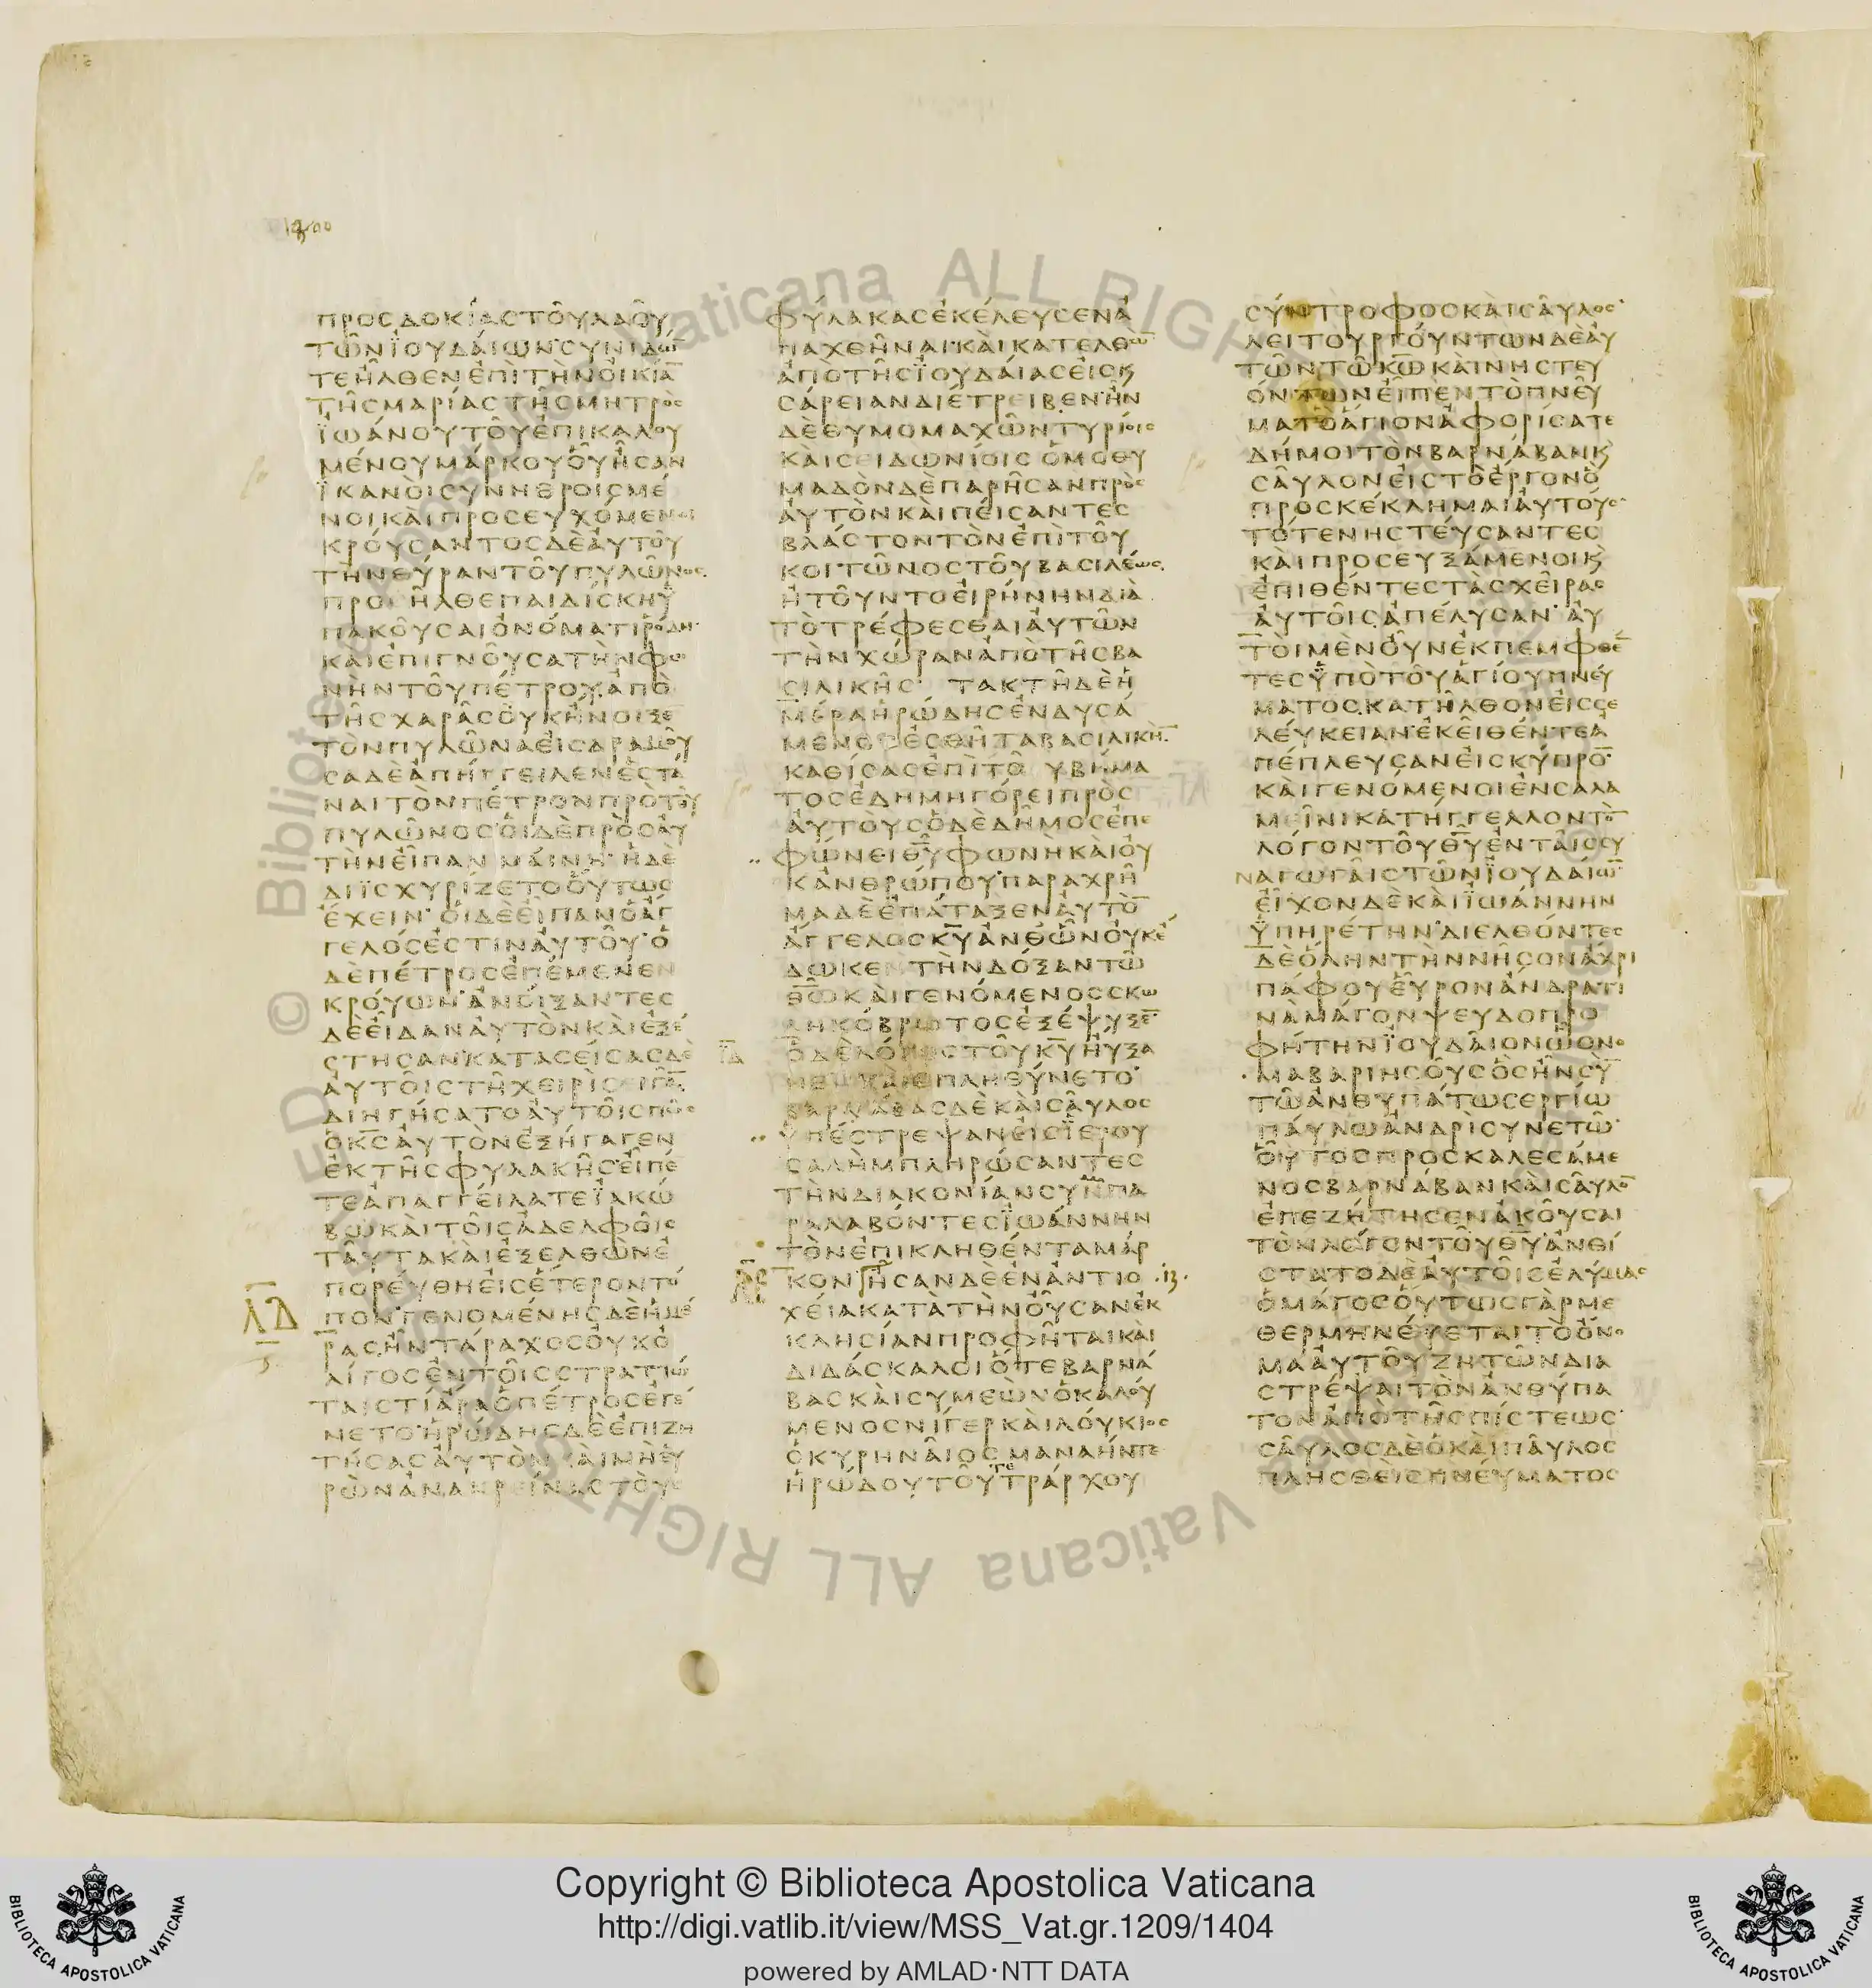 1400
προσδοκίαστοῦλαοῦ
τῶνϊουδάιων·συνιδώ̅
τεῆλθενἐπὶτὴνοἰκία̅
τῆσμαρίαστῆσμητρὸς
ϊωάνουτοῦἐπικαλου
μένουμάρκουοὗἦσαν
ϊκανὸισυνηθροισμέ
νοικαὶπροσευχόμενοι
κρόυσαντοσδὲἀυτοῦ
τὴνθύραντοῦπυλῶνος
προσῆλθεπαιδίσκηϋ
πακοῦσαιὀνόματιῥόδη·
καὶἐπιγνοῦσατὴνφω
νὴντοῦπέτρουἀπὸ
τῆσχαρᾶσὀυκἤνοιξε̅
τὸνπυλῶναεἰσδραμοῦ
σαδὲἀπήγγειλενἑστά
ναιτὸνπέτρονπρὸτοῦ
πυλῶνοσὁιδὲπρὸσἀυ
τὴνεἶπανμάινηἡδὲ
διϊσχυρίζετοοὕτως
ἔχειν·ὁιδὲεἶπανὁἄγ
γελόσἐστιναὐτοῦ·ὁ
δὲπέτροσἐπέμενεν
κρόυων·ἀνόιξαντες
δὲεἶδαναὐτὸνκαὶἐξέ
στησαν·κατασείσασδὲ
ἀυτοῖστῆχειρὶσειγα̅
διηγήσατοἀυτοῖσπῶς
ὁκ̅σ̅ἀυτὸνἐξήγαγεν
ἐκτῆσφυλακῆσεἶπέ
τεἀπαγγείλατεϊακώ
βωκαὶτοῖσἀδελφοῖς
ταῦτακαὶἐξελθὼνἐ
πορέυθηεἰσἕτεροντό
πονγενομένησδὲἡμέ
ρασἦντάραχοσὀυκὀ
λίγοσἐντοῖσστρατιώ
ταιστίἄραὁπέτροσἐγέ
νετο·ἡρώδησδὲἐπιζη
τήσασἀυτὸνκαὶμὴἑυ
ρὼνἀνακρείναστοὺς
Λ̅Δ̅
φύλακασἐκέλευσενἀ
παχθῆναι·κὰικατελθὼ̅
ἀποτῆσϊουδάιασἐισκ
σάρειανδιέτρειβεν·ἦν
δὲθυμομαχῶντυρίοις
κὰισειδωνίοισὁμοθυ
μαδὸνδὲπαρῆσανπρὸς
ἀυτὸνκὰιπέισαντες
βλάστοντὸνἐπὶτοῦ
κοιτῶνοστοῦβασιλέως
ἠτοῦντοεἰρήνηνδιὰ
τὸτρέφεσθαιἀυτῶν
τὴνχώρανἀπὸτῆσβα
σιλικῆς· τακτῆδὲἡ
μέραἡρώδησἐνδυσά
μενοσἐσθῆταβασιλικὴ̅
καθίσασἐπὶτοῦβήμα
τοσἐδημηγόρειπρὸς
ἀυτὸυσὁδὲδῆμοσἐπε
φώνειθ̅υ̅φωνὴκὰιὀυ
κἀνθρώπου·παραχρῆ
μαδὲἐπάταξενἀυτὸ̅
ἄγγελοσκ̅υ̅ἀνθῶνὀυκἔ
δωκεντὴνδόξαντῶ
θ̅ω̅κὰιγενόμενοσσκω
ληκόβρωτοσἐξέψυξε̅
ὁδὲλόγοστοῦκ̅υ̅ηὔξα
νεκὰιἐπληθύνετο·
βαρνάβασδὲκὰισαῦλος
ὑπέστρεψανἐισϊερου
σαλὴμπληρώσαντες
τὴνδιακονίανσυνπα
ραλαβόντεσϊωάννην
τὸνἐπικληθένταμάρ
κον ἦσανδὲἐνἀντιο ·13·
χέιακατὰτὴνοὖσανἐκ
κλησίανπροφῆταικὰι
διδάσκαλοιὅτεβαρνά
βασκὰισυμεὼνὁκαλου
μενοσνίγερκὰιλόυκιος
ὁκυρηνᾶιοςμαναήντε
ἡρώδουτοῦτετράρχου
σύντροφοσκὰισᾶυλος·
λειτουργόυντωνδὲἀυ
τῶντῶκ̅ω̅κὰινηστευ
όντωνεἶπεντὸπνεῦ
ματὸἅγιονἀφορίσατε
δήμοιτὸνβαρνάβανκ
σᾶυλονἐιστὸἔργονὃ
προσκέκλημαιἀυτόυς·
τότενηστέυσαντες
κὰιπροσευξάμενοικ
ἐπιθέντεστὰσχεῖρας
ἀυτοῖςἀπέλυσαν·ἀυ
τὸιμὲνὀῦνἐκπεμφθέ̅
τεσϋπὸτοῦἁγίουπνεύ
ματος·κατῆλθονἐισσε
λέυκειαν·ἐκεῖθέντεἀ
πέπλευσανἐισκύπρο̅·
κὰιγενόμενοιἐνσαλα
μεῖνικατήγγελλοντὸ̅
λόγοντοῦθ̅υ̅ἐνταῖσσυ
ναγωγᾶιστῶνϊουδάιω̅
εἶχονδὲκὰιϊωάννην
ϋπηρέτην·διελθόντες
δὲὅληντὴννῆσονἄχρι
πάφουεὗρονἄνδρατι
νὰμάγονψευδοπρο
φήτηνϊουδᾶιονὧὄνο
μαβαριησοῦσὃσἦνσὺ̅
τῶἀνθυπάτωσεργίω
πάυλωἀνδρὶσυνετῶ·
οὗτοσπροσκαλεσάμε
νοσβαρνάβανκὰισᾶυλο̅
ἐπεζήτησενἀκοῦσαι
τὸνλόγοντοῦθ̅υ̅ἀνθί
στατοδὲἀυτοῖσἐλύμας
ὁμάγοσὁύτωσγὰρμε
θερμηνέυεταιτὸὄνο
μαἀυτοῦζητῶνδια
στρέψαιτὸνἀνθύπα
τονἀπὸτῆσπίστεως·
σᾶυλοσδὲὁκὰιπᾶυλος
πλησθὲισπνέυματος
Copyright © Biblioteca Apostolica Vaticana
http://digi.vatlib.it/view/MSS_Vat.gr.1209/1404
powered by AMLAD·NTT DATA
BIBLIOTECA APOSTOLICA VATICANA
BIBLIOTECA APOSTOLICA VATICANA